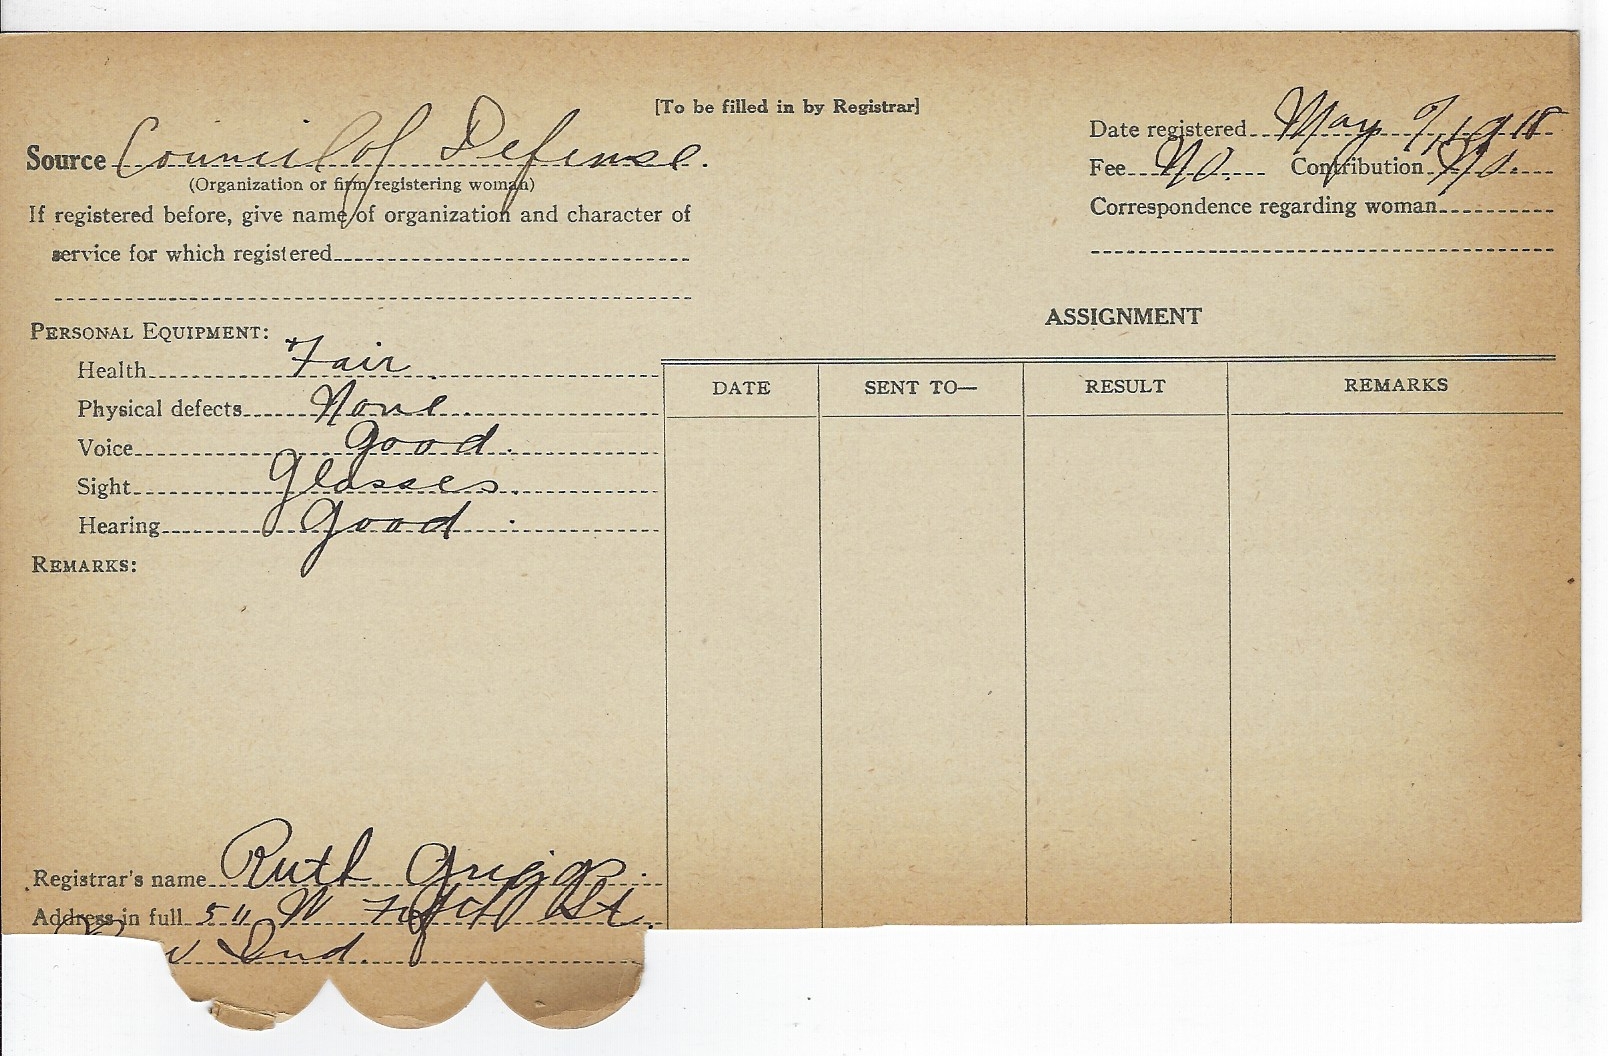 [To be filled in by Registrar]
Source Council of Defense.
(Organization or firm registering woman)
If registered before, give name of organization and character of
service for which registered
Date registered May 9, 1918
Fee No. Contribution No.
Correspondence regarding woman
PERSONAL EQUIPMENT:
Health Fair.
Physical defects None.
Voice Good.
Sight Glasses.
Hearing Good.
REMARKS:
ASSIGNMENT
DATE SENT TO— RESULT REMARKS
Registrar's name Ruth Griggs.
Address in full 511 W St.
Ind.